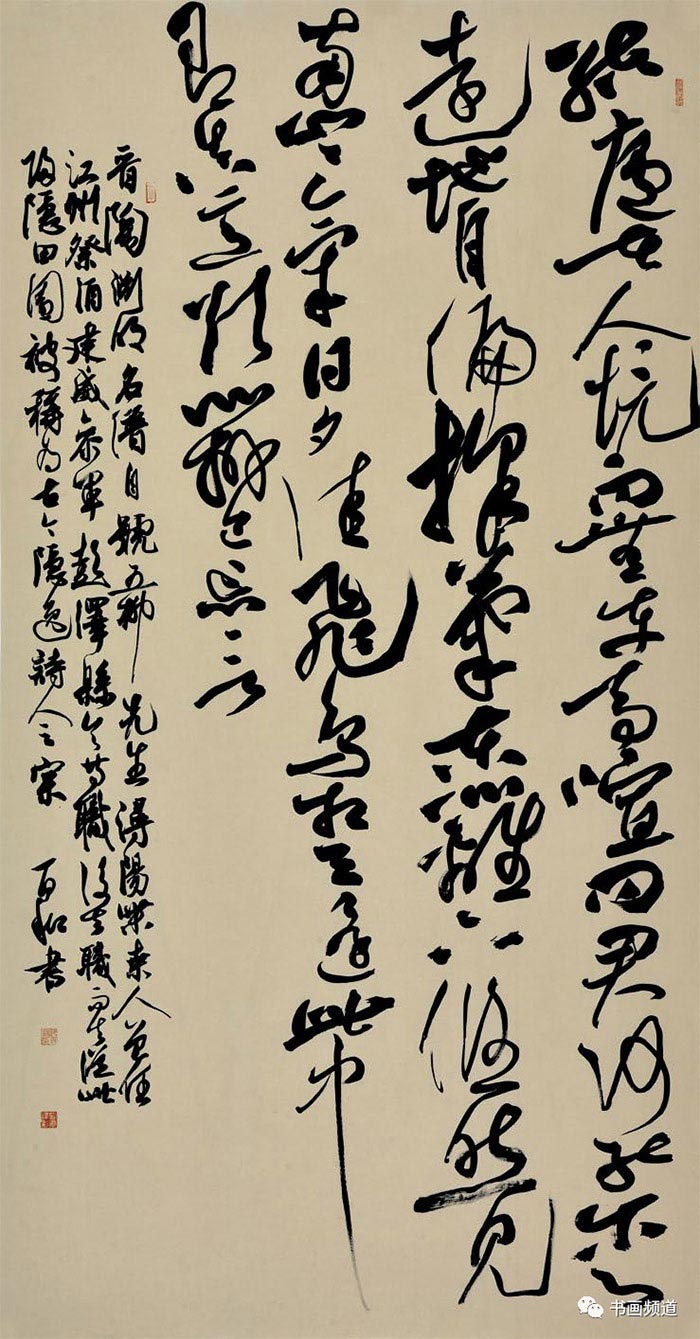 結廬在人境而無車馬喧問君何能爾心
遠地自偏採菊東籬下悠然見
南山山氣日夕佳飛鳥相與還此中
有真意欲辯已忘言
晉陶淵明名潛自號五柳先生潯陽柴桑人曾任
江州祭酒建威參軍彭澤縣令等職後去職而去從此
歸隱田園被稱為古今隱逸詩人之宗 百和書
书画频道